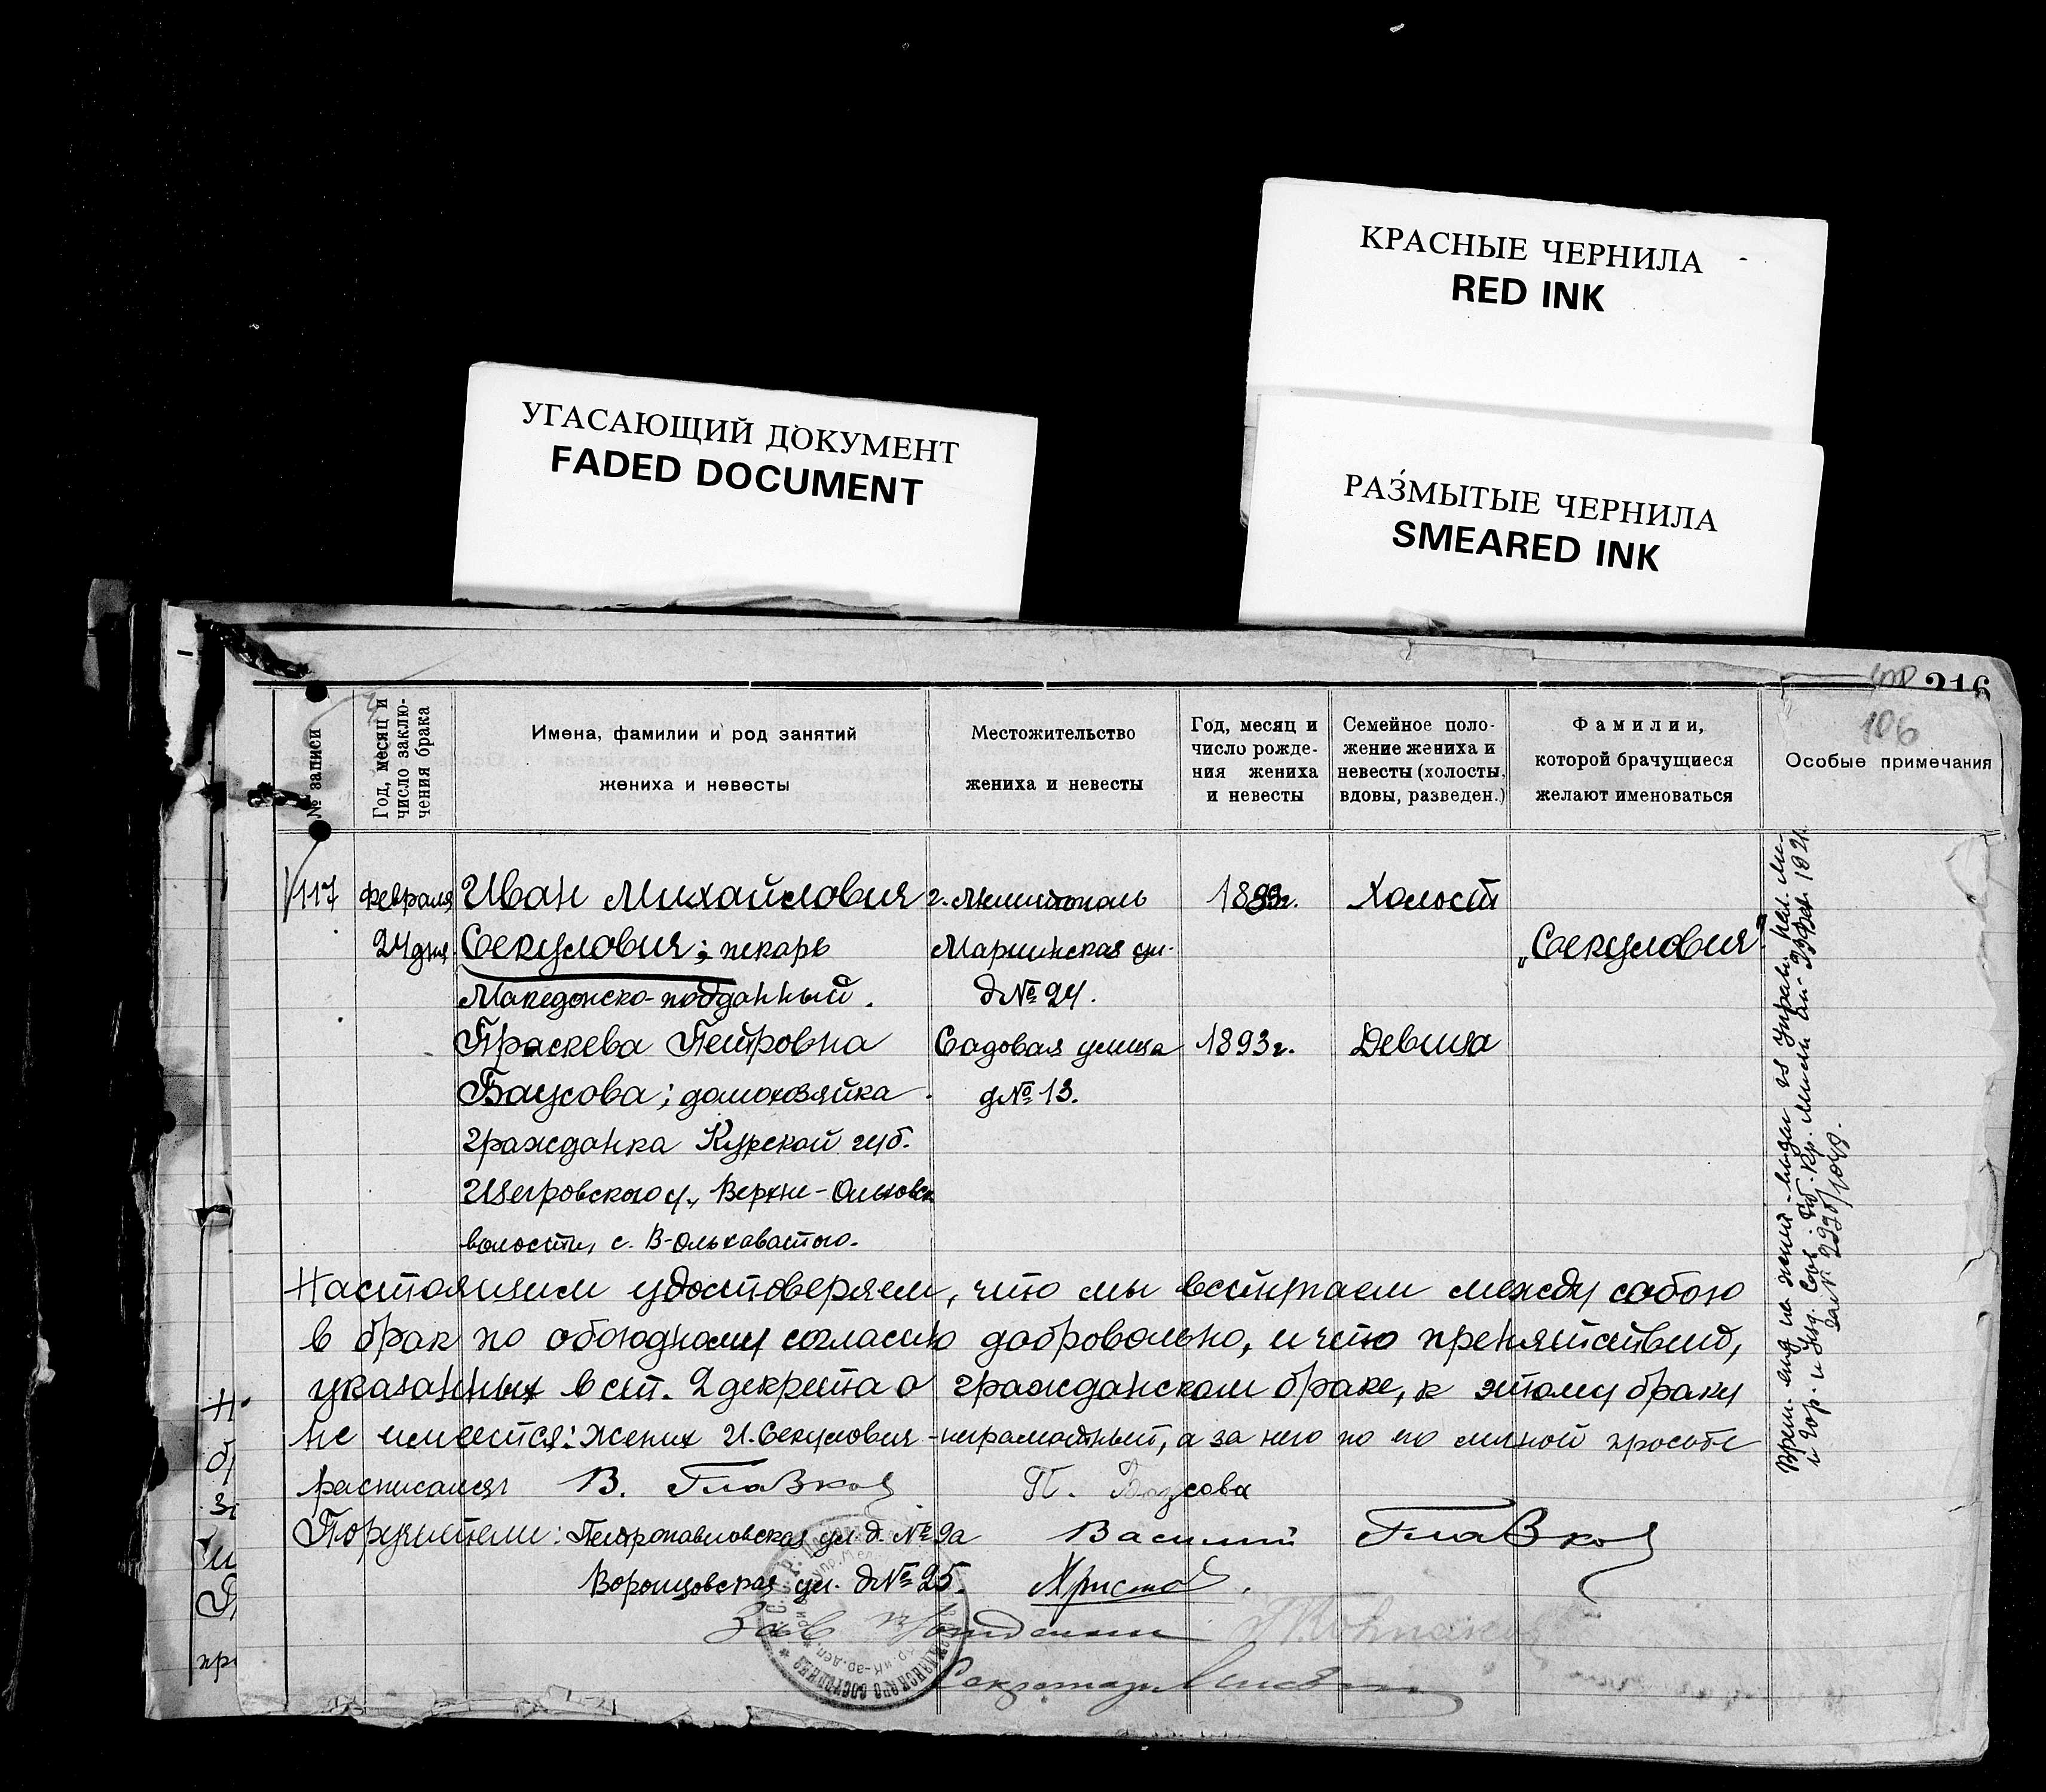 КРАСНЫЕ ЧЕРНИЛА
RED INK
УГАСАЮЩИЙ ДОКУМЕНТ
FADED DOCUMENT
РАЗМЫТЫЕ ЧЕРНИЛА
SMEARED INK
216
106
№ записи
Год, месяц и
число заклю-
чения брака
Имена, фамилии и род занятий
жениха и невесты
Местожительство
жениха и невесты
Год, месяц и
число рожде-
ния жениха
и невесты
Семейное поло-
жение жениха и
невесты (холосты,
вдовы, разведен.)
Фамилии,
которой брачущиеся
желают именоваться
Особые примечания
117
Февраля
24 дня.
Иван Михайлович
Секулович; пекарь
Македонско-подданный.
г. Мелитополь
Мариинская ул.
д № 24.
Холост
„Секулович"
Праскева Петровна
Баусова; домохозяйка
гражданка Курской губ.
Щегровского у., Верхне-Ольховск
волости, с. В-Ольхаватого.
Садовая улица
д № 13.
1893 г.
Девица
Настоящим удостоверяем, что мы вступаем между собою
в брак по обоюдному согласию добровольно, и что препятствий,
указанных в ст. 2 декрета о гражданском браке, к этому браку
не имеется: Жених И. Секулович - неграмотный, а за него по его личной просьбе
расписался В. Главков П. Баусова
Поручители: Петропавловская ул. д. № 9а Василий Главков
Воронцовская ул. д № 25. Христов.
Зав
Секретарь